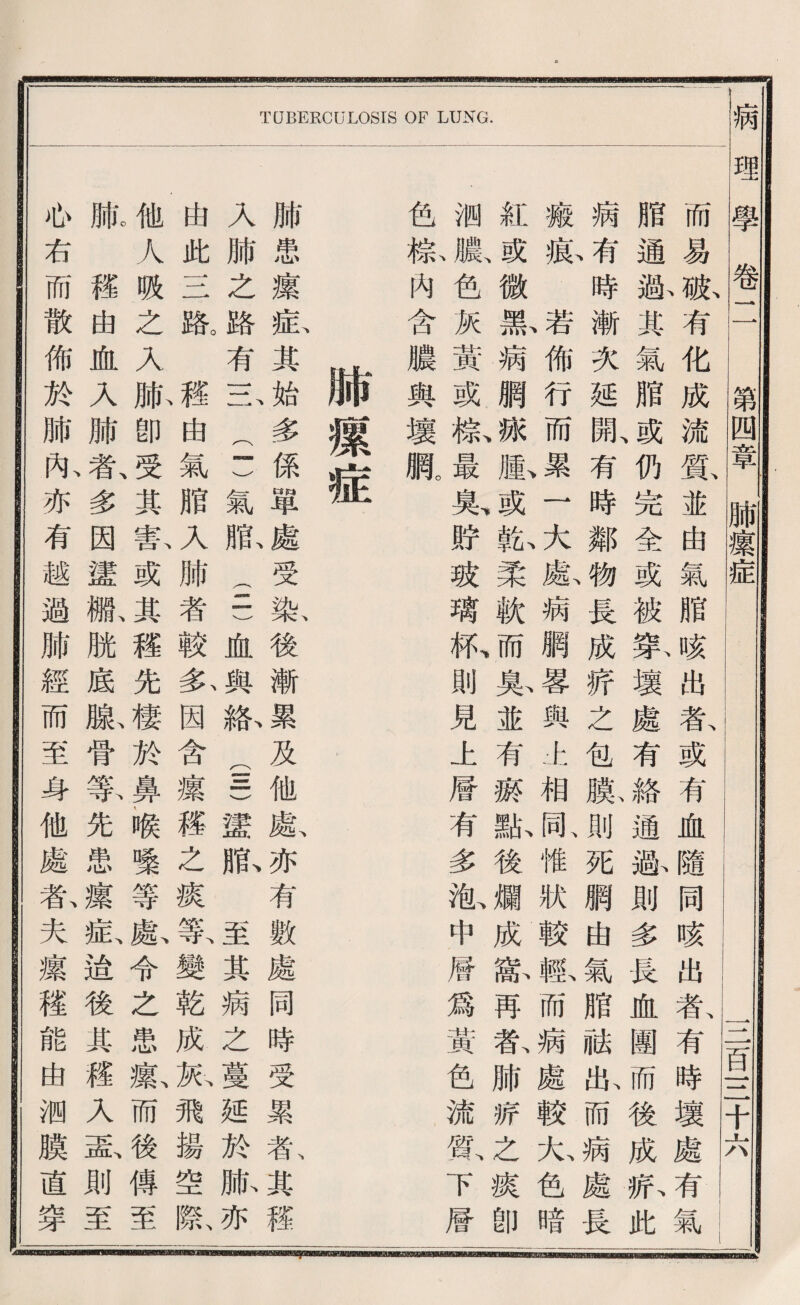 TUBERCULOSIS OF LUNG.
病理學 卷二 第四章 肺瘰症 三百三十六
而易破、有化成流質、並由氣脘咳出者、或有血隨同咳出者、有時壞處有氣
脘通過、其氣脘或仍完全或被穿、壞處有絡通過、則多長血團而後成疛、此
病有時漸次延開、有時鄰物長成疛之包膜、則死膶由氣脘祛出、而病處長
瘢痕、若佈行而累一大處、病膶畧與上相同、惟狀較輕、而病處較大、色暗
紅或微黑、病膶脉腫、或乾、柔軟而臭、並有瘀點、後爛成窩、再者、肺疛之痰卽
泗膿、色灰黃或棕、最臭、貯玻璃杯、則見上層有多泡、中層爲黃色流質、下層
色棕、內含膿與壞膶。
肺瘰症
肺患瘰症、其始多係單處受染、後漸累及他處、亦有數處同時受累者、其䅜
入肺之路有三、(一)氣脘、(二)血與絡、(三)衁脘、至其病之蔓延於肺、亦
由此三路。䅜由氣脘入肺者較多、因含瘰䅜之痰等、變乾成灰、飛揚空際、
他人吸之入肺、卽受其害、或其䅜先棲於鼻喉嗓等處、令之患瘰、而後傳至
肺。䅜由血入肺者、多因衁、胱底腺、骨等、先患瘰症、迨後其䅜入衁、則至
心右而散佈於肺內、亦有越過肺經而至身他處者、夫瘰䅜能由泗膜直穿